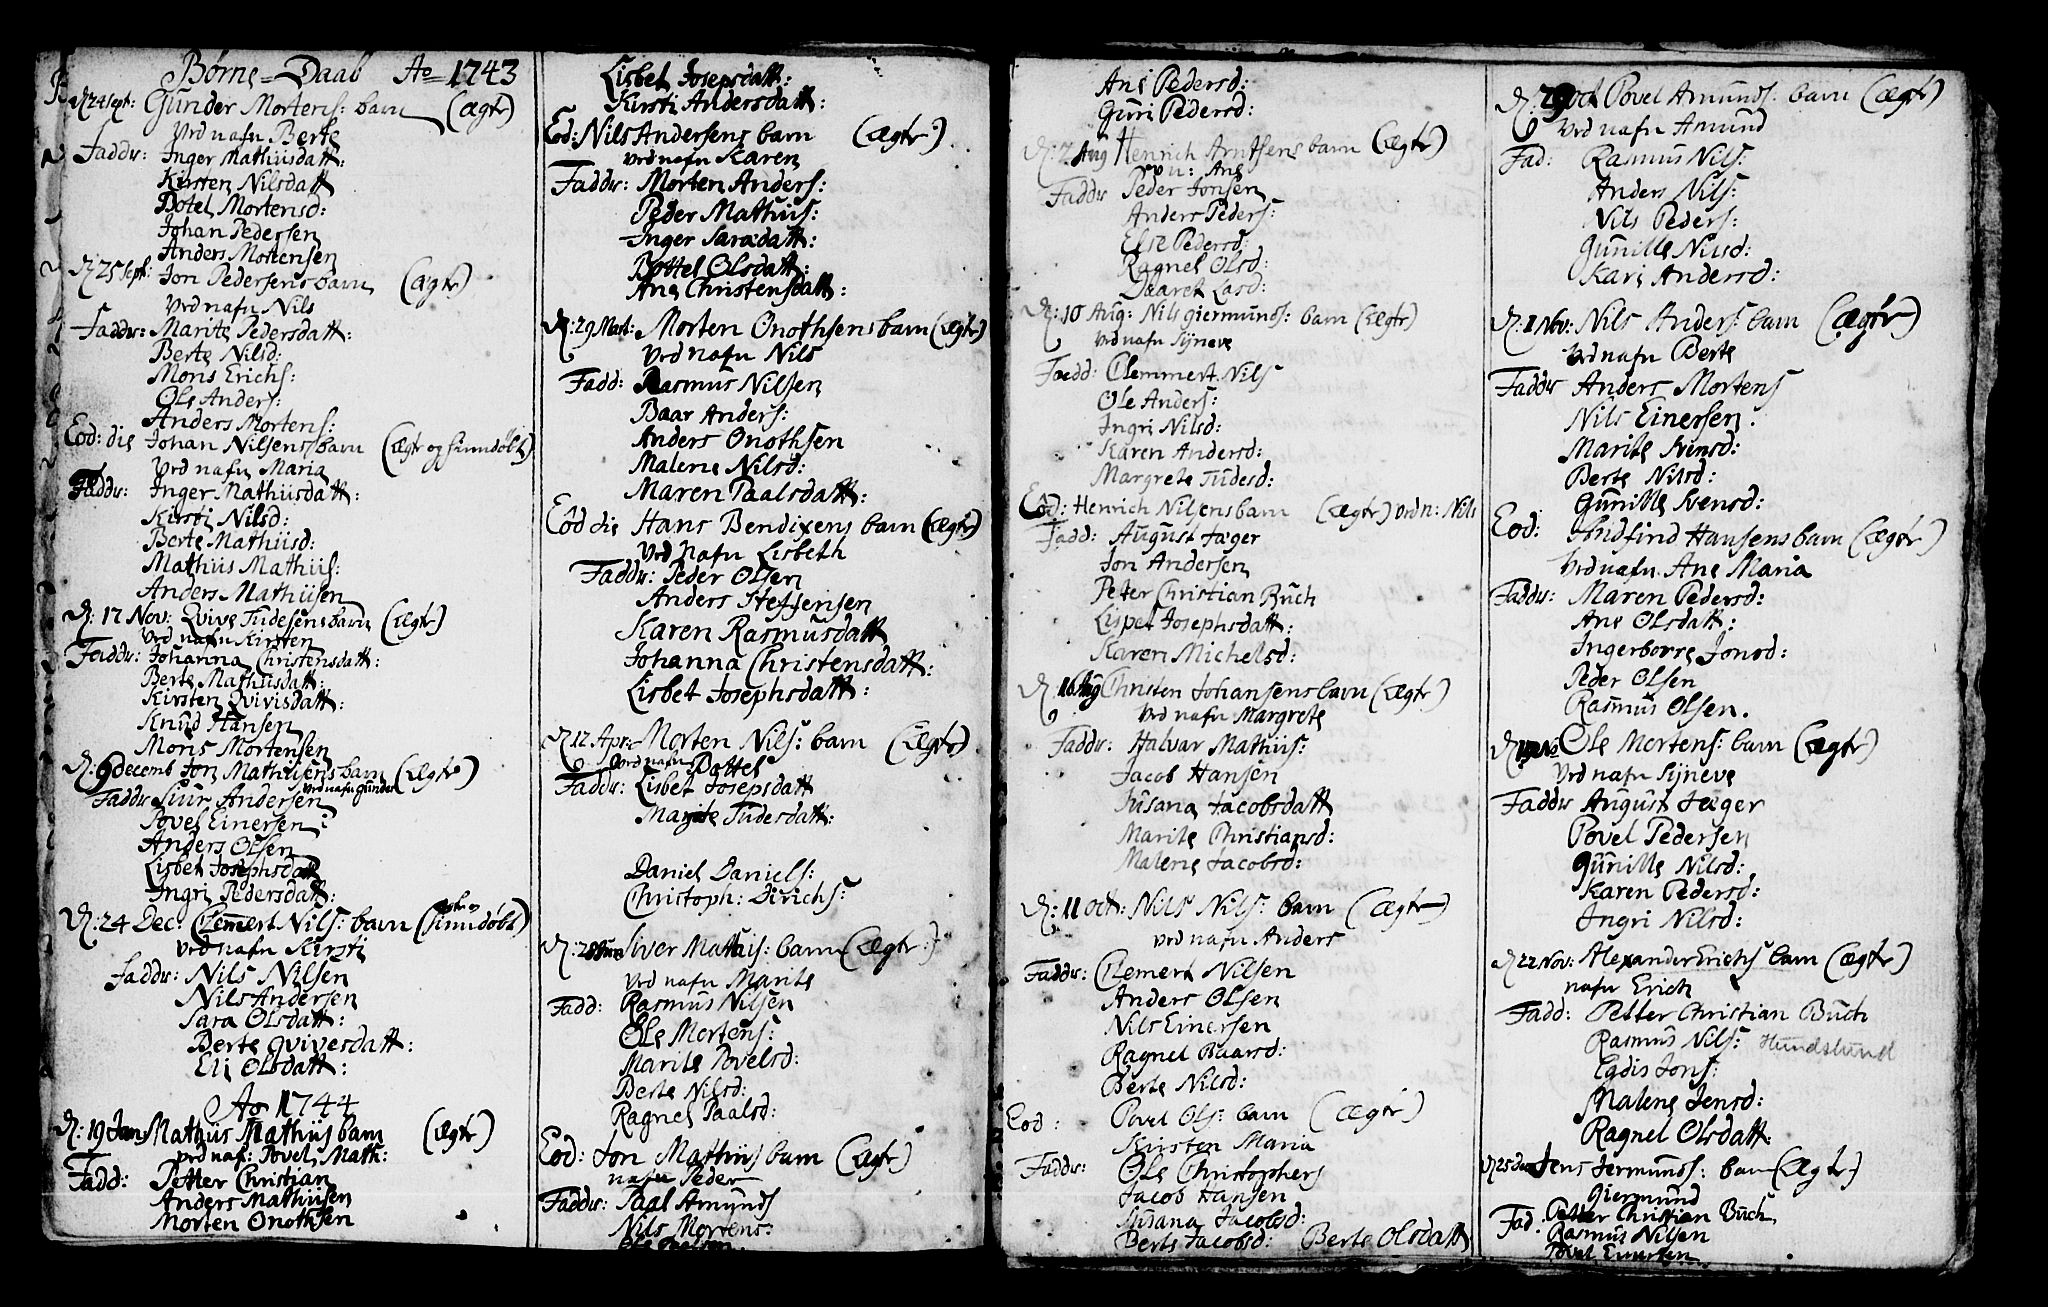 Børne-Daab Ao 1743
d: 24 Sept: Gunder Mortens: barn (ægte)
Ved nafn Berte
Faddr: Inger Mathiisdatt:
Kirsten Nilsdatt
Botel Mortensd:
Johan Pedersen
Anders Mortensen
d: 25 Sept: Jon Pedersens barn (ægte)
Ved nafn Nils
Faddr: Marite Pedersdatt:
Berte Nilsd:
Mons Erichs:
Ole Anders:
Anders Mortens:
Eod: die Johan Nilsens barn (ægte og hiemdøbt)
Ved nafn Maria
Faddr: Inger Mathiisdatt:
Kirsti Nilsd:
Berte Mathiisd:
Mathiis Mathiis:
Anders Mathiisen
d: 17 Nov: Qvive Tudesens barn (ægte)
Ved nafn Kirsten
Faddr: Johanna Christensdatt:
Berte Mathiisdatt:
Kirsten Qvivisdatt:
Knud Hansen
Mons Mortensen
d: 9 decemb Jon Mathiisens barn (ægte)
Ved nafn Gunder
Faddr Siur Andersen
Povel Einersen
Anders Olsen
Lisbet Josephsdatt
Ingri Pedersdatt:
d: 24 Dec: Clemmert Nils: barn (hiemdøbt)
Ved nafn Kirsti
Faddr: Nils Nilsen
Nils Andersen
Sara Olsdatt:
Berte Qvivesdatt:
Eli Olsdatt:
Ao 1744
d: 19 Jan Mathiis Mathiis barn (ægte)
Ved naf: Povel Math:
Fadd: Petter Christian
Anders Mathiisen
Morten Onothsen
Lisbet Josepsdatt:
Kirsti Andersdatt:
Eod: Nils Andersens barn (ægte)
Ved nafn Karen
Faddr: Morten Anders:
Peder Mathiis:
Inger Saradatt:
Bottel Olsdatt:
Ane Christensdatt:
d: 29 Mart: Morten Onothsens barn (ægte)
Ved nafn Nils
Fadd: Rasmus Nilsen
Baar Anders:
Anders Onothsen
Malene Nilsd:
Maren Paalsdatt:
Eod die Hans Bendixens barn (ægte)
Ved Nafn Lisbeth
Faddr: Peder Olsen
Anders Steffensen
Karen Rasmusdatt
Johanna Christensdatt:
Lisbet Josephsdatt:
d: 12 Apr: Morten Nils: barn (ægte)
Ved nafn Bottel
Faddr: Lisbet Josepsdatt
Marite Tudesdatt:
Daniel Daniels:
Christoph: Dirichs:
d: 28 Siver Mathiis: barn (ægte:)
Ved nafn Marite
Fadd: Rasmus Nilsen
Ole Mortens:
Marite Povelsd:
Berte Nilsd:
Ragnel Paalsd:
Eod: Jon Mathiis barn (ægte)
nafn Peder
Faddr: Paal Amunds
Nils Mortens:
Ane Pedersd:
Guri Pedersd:
d: 2 Aug Henrich Arntsens barn (ægte)
v n: Ane
Faddr Peder Jonsen
Anders Peders:
Else Pedersd:
Ragnel Olsd:
Daaret Lasd:
d: 10 Aug: Nils Giermunds: barn (ægte)
Ved nafn Syneve
Fadd: Clemmert Nils
Ole Anders:
Ingri Nilsd:
Karen Andersd:
Margrete Tudesd:
Eod: Henrich Nilsens barn (ægte) ved n: Nils
Fadd: August Jæger
Jon Andersen
Peter Christian Buch
Lispet Josephsdatt:
Karen Michelsd:
d: 16 Aug Christen Johansens barn (ægte)
Ved nafn Margrete
Faddr: Halvar Mathiis:
Jacob Hansen
Susana Jacobsdatt
Marite Christiansd:
Malene Jacobsd:
d: 11 Oct: Nils Nils: barn (ægte)
Ved nafn Anders
Faddr: Clemert Nilsen
Anders Olsen
Nils Einersen
Ragnel Baarsd:
Berte Nilsd:
Eod: Povel Ols: barn (ægte)
Kirsten Maria
Faddr: Ole Christophers
Jacob Hansen
Susana Jacobsd:
Berte Jacobsd: Berte Olsdatt
d: 29 Oct Povel Amunds: barn (ægte)
Ved nafn Amund
Fad: Rasmus Nils:
Anders Nils:
Nils Peders:
Gunille Nilsd:
Kari Andersd:
d: 1 Nov: Nils Anders: barn (ægte)
Ved nafn Berte
Faddr Anders Mortens
Nils Einersen.
Marite Svensd:
Berte Nilsd:
Gunille Svensd:
Eod: Andfind Hansens barn (ægte)
Ved nafn Ane Maria
Faddr: Maren Pedersd:
Ane Olsdatt:
Ingerborre Jonsd:
Peder Olsen
Rasmus Olsen.
Ole Mortens: barn (ægte)
Ved nafn Syneve
Faddr August Jæger
Povel Pedersen
Gunille Nilsd:
Karen Pedersd:
Ingri Nilsd:
d: 22 Nov: Alexander Erichs barn (ægte)
nafn Erich
Fadd: Petter Christian Buch
Rasmus Nils: Hundslund
Egdis Jons:
Malene Jensd:
Ragnel Olsdatt.
d 25 Jens Jermunds: barn (ægte:)
Giermund
Fad: Petter Christian Buch
Rasmus Nilsen
Povel Einersen